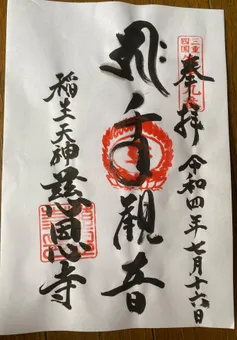 奉拝 令和四年七月十六日
三重
四国
手観音
稲生天神 慈恩寺